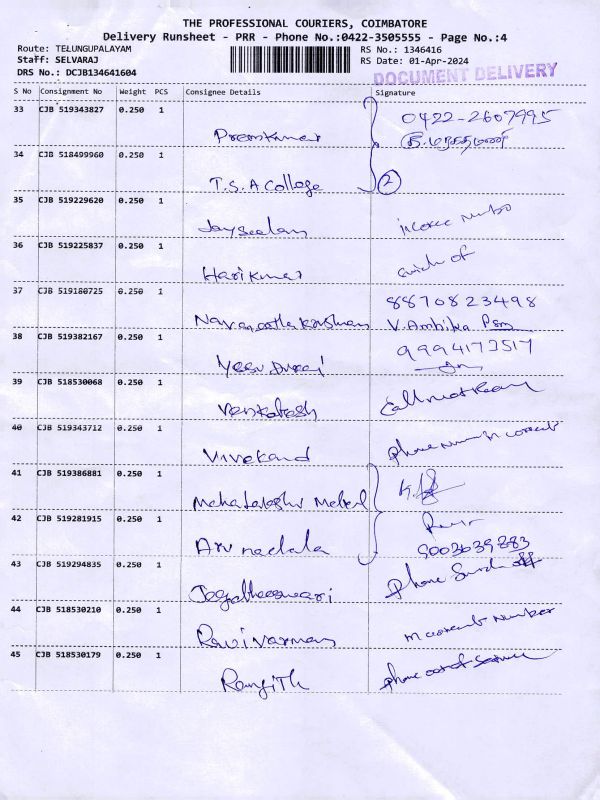 THE PROFESSIONAL COURIERS, COIMBATORE
Delivery Runsheet - PRR - Phone No.:0422-3505555 - Page No.:4
Route: TELUNGUPALAYAM
RS No.: 1346416
Staff: SELVARAJ
RS Date: 01-Apr-2024
DRS No.: DCJB134641604
DOCUMENT DELIVERY
S No Consignment No Weight PCS Consignee Details Signature
33 CJB 519343827 0.250 1
Premkumar 0422-2607995
34 CJB 518499960 0.250 1
T.S.A College 2
35 CJB 519229620 0.250 1
Jayseelan
36 CJB 519225837 0.250 1
Harikumar switch of
37 CJB 519180725 0.250 1 8870823498
Navaneetha Krishnan V. Ambika
38 CJB 519382167 0.250 1 9994173517
Yesu Durai
39 CJB 518530068 0.250 1
Venkatesh
40 CJB 519343712 0.250 1
Vivekand phone
41 CJB 519386881 0.250 1
42 CJB 519281915 0.250 1
9003639883
43 CJB 519294835 0.250 1
Jagatheeswari phone
44 CJB 518530210 0.250 1
Ravivarman number
45 CJB 518530179 0.250 1
Ranjith phone out of service